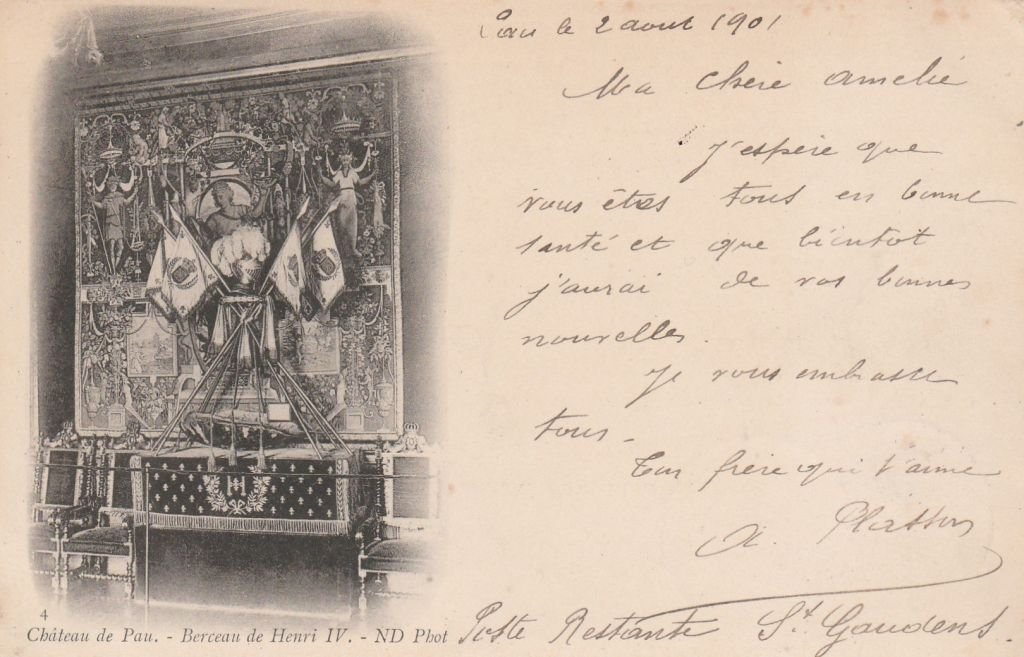 Pau le 2 aout 1901
Ma chère amelie
J'espère que
vous êtes tous en bonne
santé et que bientot
j'aurai de vos bonnes
nouvelles.
Je vous embrasse
tous.
Ton frère qui t'aime
A.
Poste Restante St Gaudens.
H
4
Château de Pau. - Berceau de Henri IV. - ND Phot